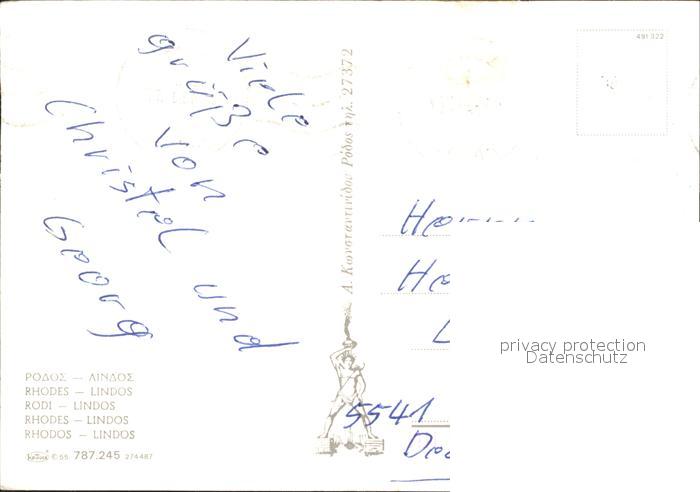 Viele
grüße
von
Christel und
Georg
Δ. Κωνσταντινίδου Ρόδος τηλ. 27372
491 322
5541
privacy protection
Datenschutz
ΡΟΔΟΣ — ΛΙΝΔΟΣ
RHODES — LINDOS
RODI — LINDOS
RHODES — LINDOS
RHODOS — LINDOS
© 55 787.245 274487